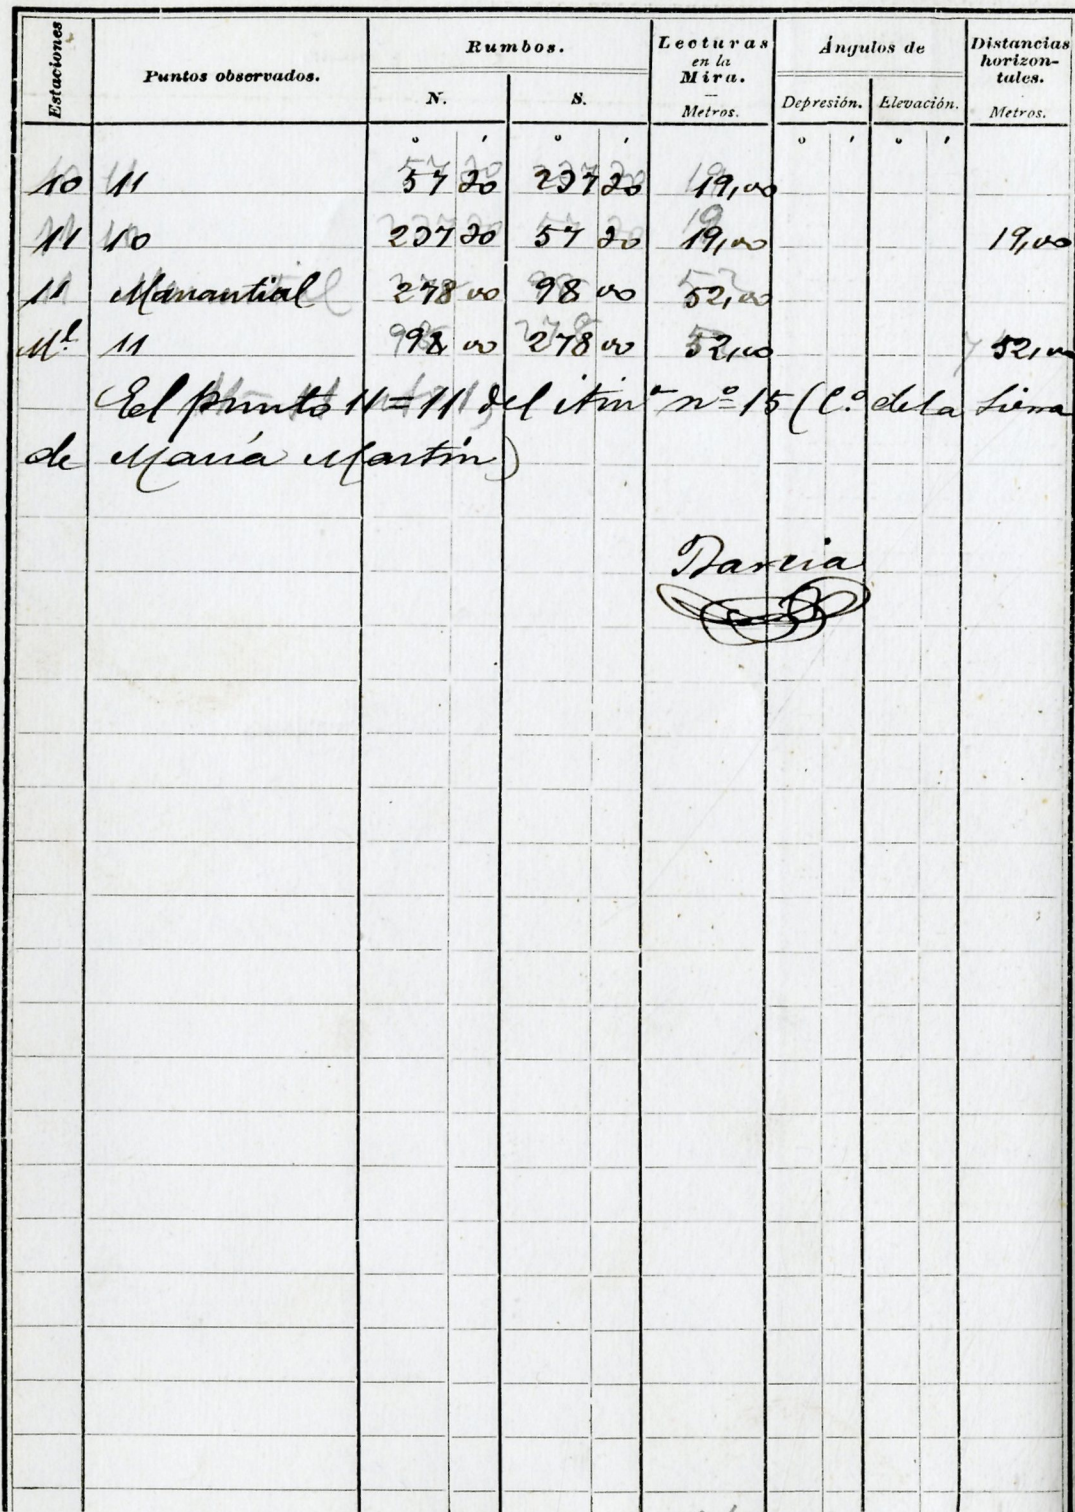 Estaciones Puntos observados. Rumbos. N. S. Lecturas en la Mira. — Metros. Ángulos de Depresión. Elevación. Distancias horizontales. Metros.
° ′ ° ′ ° ′ ° ′
10 11 57 30 237 30 19,00
11 10 237 30 57 30 19,00 19,00
11 Manantial 278 00 98 00 52,00
Ml. 11 98 00 278 00 52,00 52,00
El punto 11=11 del itino nº 15 (C.º de la Sierra
de María Martín)